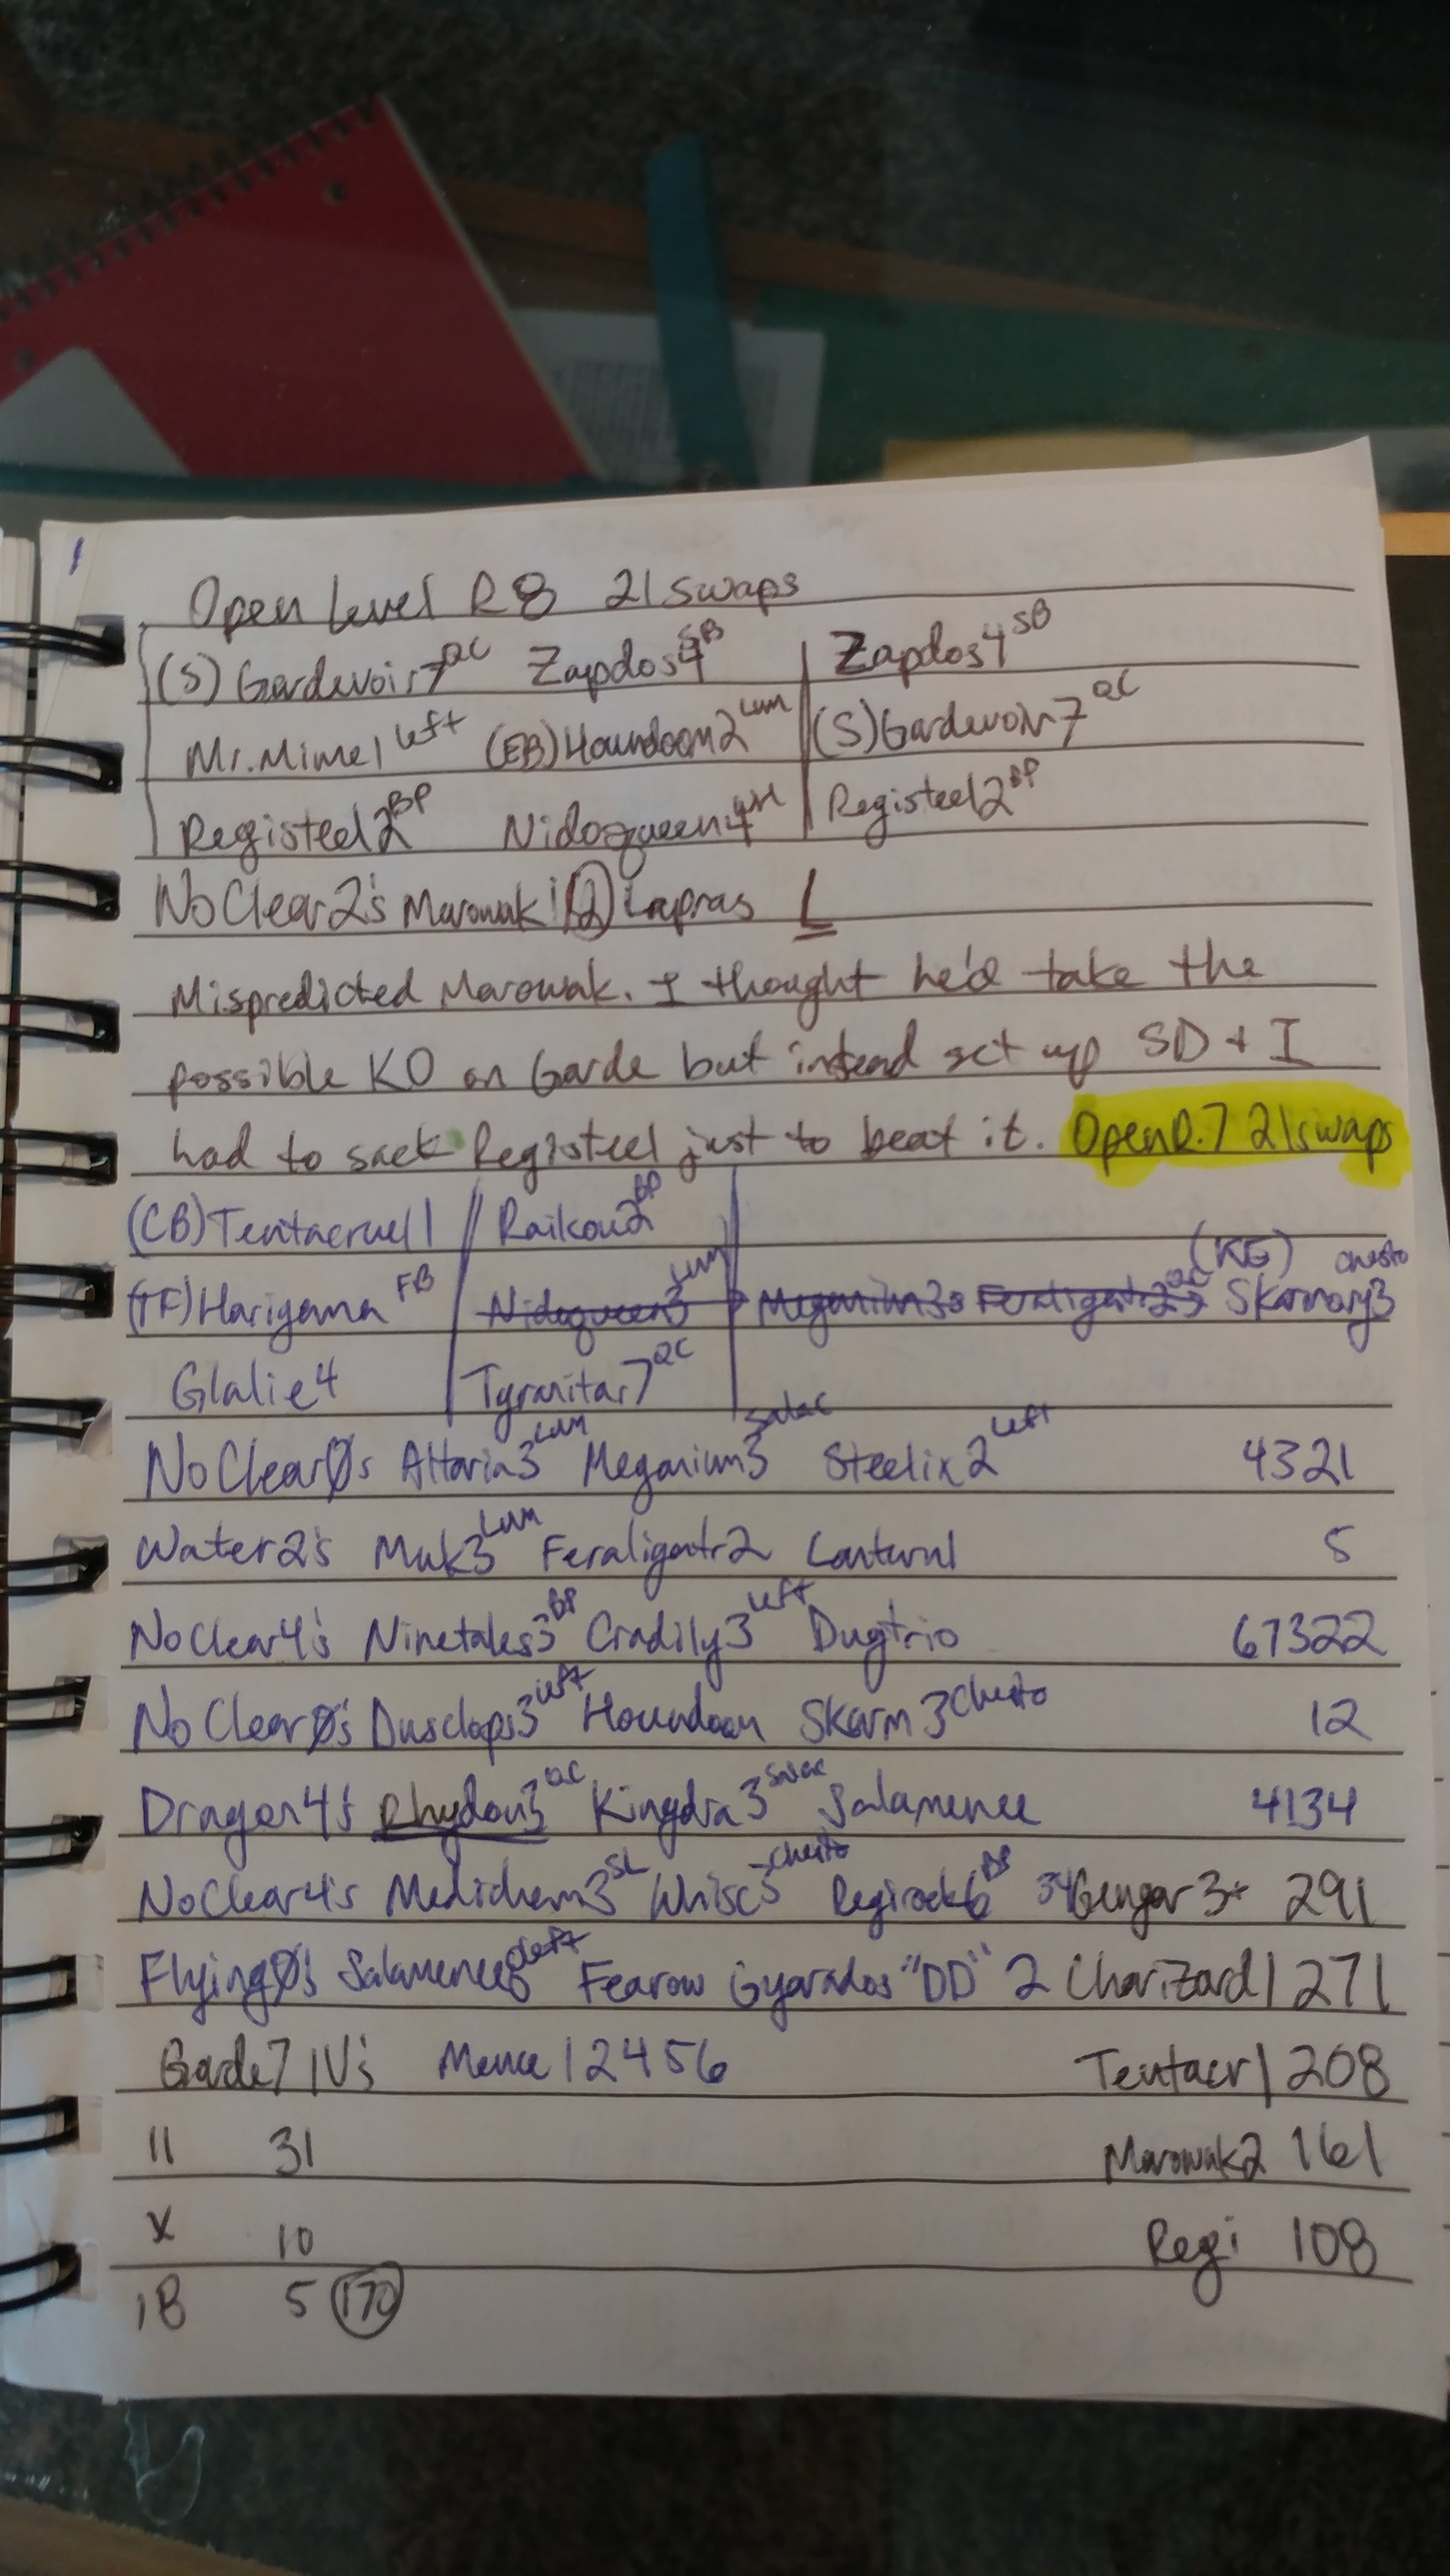 1
Open Level R8 21 swaps
(S) Gardevoir7 QC Zapdos4 SB Zapdos4 SB
Mr. Mime1 Left (EB) Houndoom2 Lum (S) Gardevoir7 QC
Registeel2 BP Nidoqueen4 Registeel2 BP
No Clear2's Marowak! (2) Lapras L
Mispredicted Marowak. I thought he'd take the
possible KO on Garde but instead set up SD + I
had to sack Registeel just to beat it. Open R.7 21 swaps
(CB) Tentacruel1 Raikou2 BP
(TF) Hariyama FB Nidoqueen3 Lum Meganium3 Feraligatr2 QC (KE) Skarmory3 Chesto
Glalie4 Tyranitar7 QC
No Clear0's Altaria3 Lum Meganium3 Salac Steelix2 Left 4321
Water2's Muk3 Lum Feraligatr2 Lanturn1 5
No Clear4's Ninetales3 BP Cradily3 Left Dugtrio 67322
No Clear0's Dusclops3 Left Houndoom Skarm3 Chesto 12
Dragon4's Rhydon3 QC Kingdra3 Salac Salamence 4134
No Clear4's Medicham3 SL Whisc3 Chesto Regirock6 Gengar3+ 291
Flying0's Salamence6 Left Fearow Gyarados "DD" 2 Charizard1 271
Garde7 IV's Mence 12456 Tentacr1 208
11 31 Marowak2 161
x 10 Regi 108
18 5 (170)